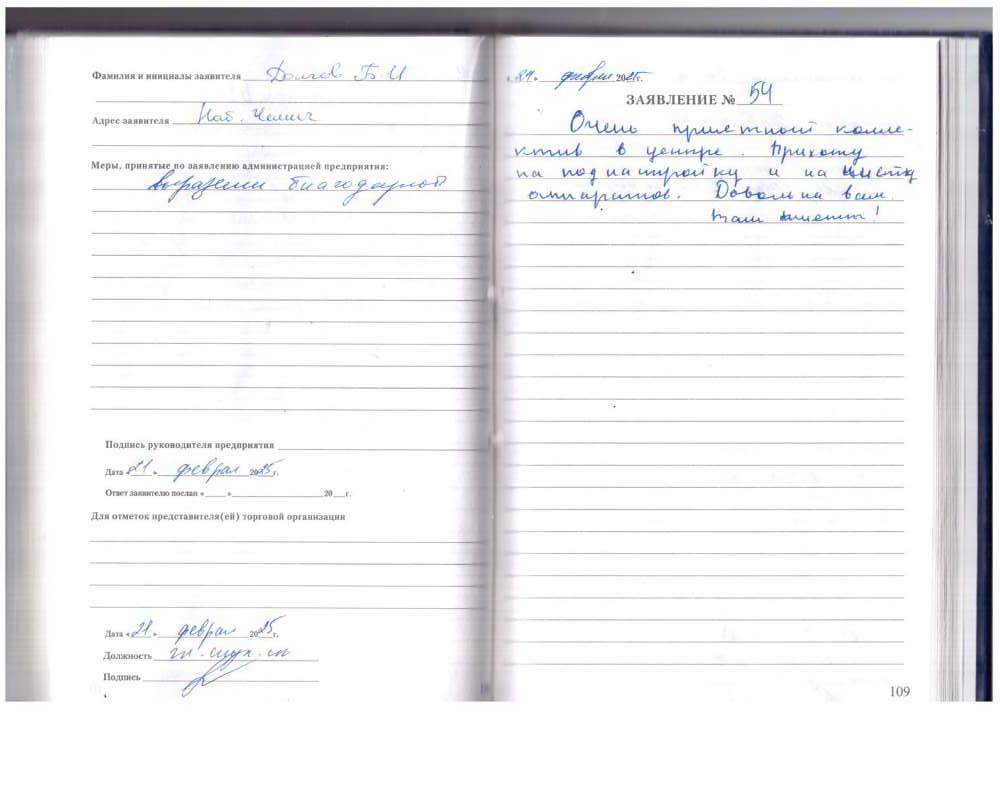 Фамилия и инициалы заявителя Долгов Б И
Адрес заявителя Наб. Челны
Меры, принятые по заявлению администрацией предприятия:
выражении благодарной
Подпись руководителя предприятия
Дата «21» феврал 2025г.
Ответ заявителю послан « » 20 г.
Для отметок представителя(ей) торговой организации
Дата «21» феврал 2025г.
Должность
Подпись
«21» феврал 2025г.
ЗАЯВЛЕНИЕ № 54
Очень приятный колле-
ктив в центре. Прихожу
на поднастройку и на чистку
аппаратов. Довольна вам.
Ваш клиент!
109